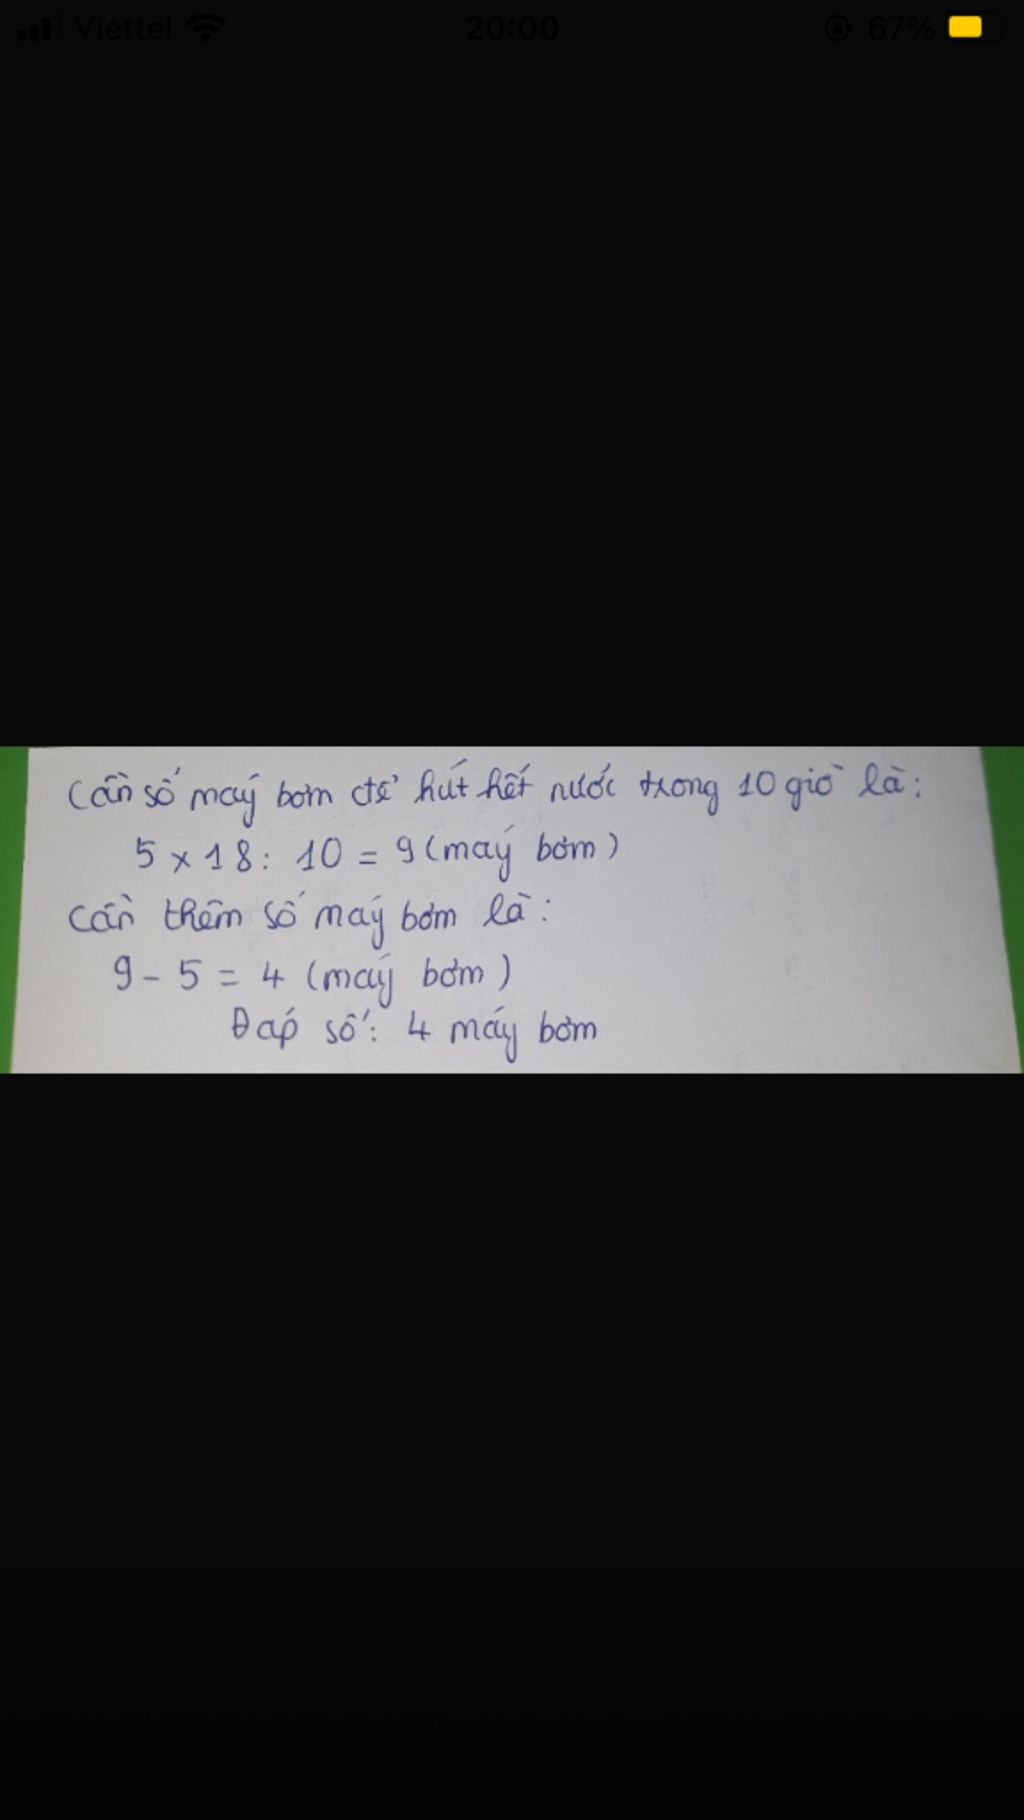 Viettel 20:00 67%
Cần số máy bơm để hút hết nước trong 10 giờ là:
5 x 18 : 10 = 9 (máy bơm)
Cần thêm số máy bơm là:
9 - 5 = 4 (máy bơm)
Đáp số: 4 máy bơm